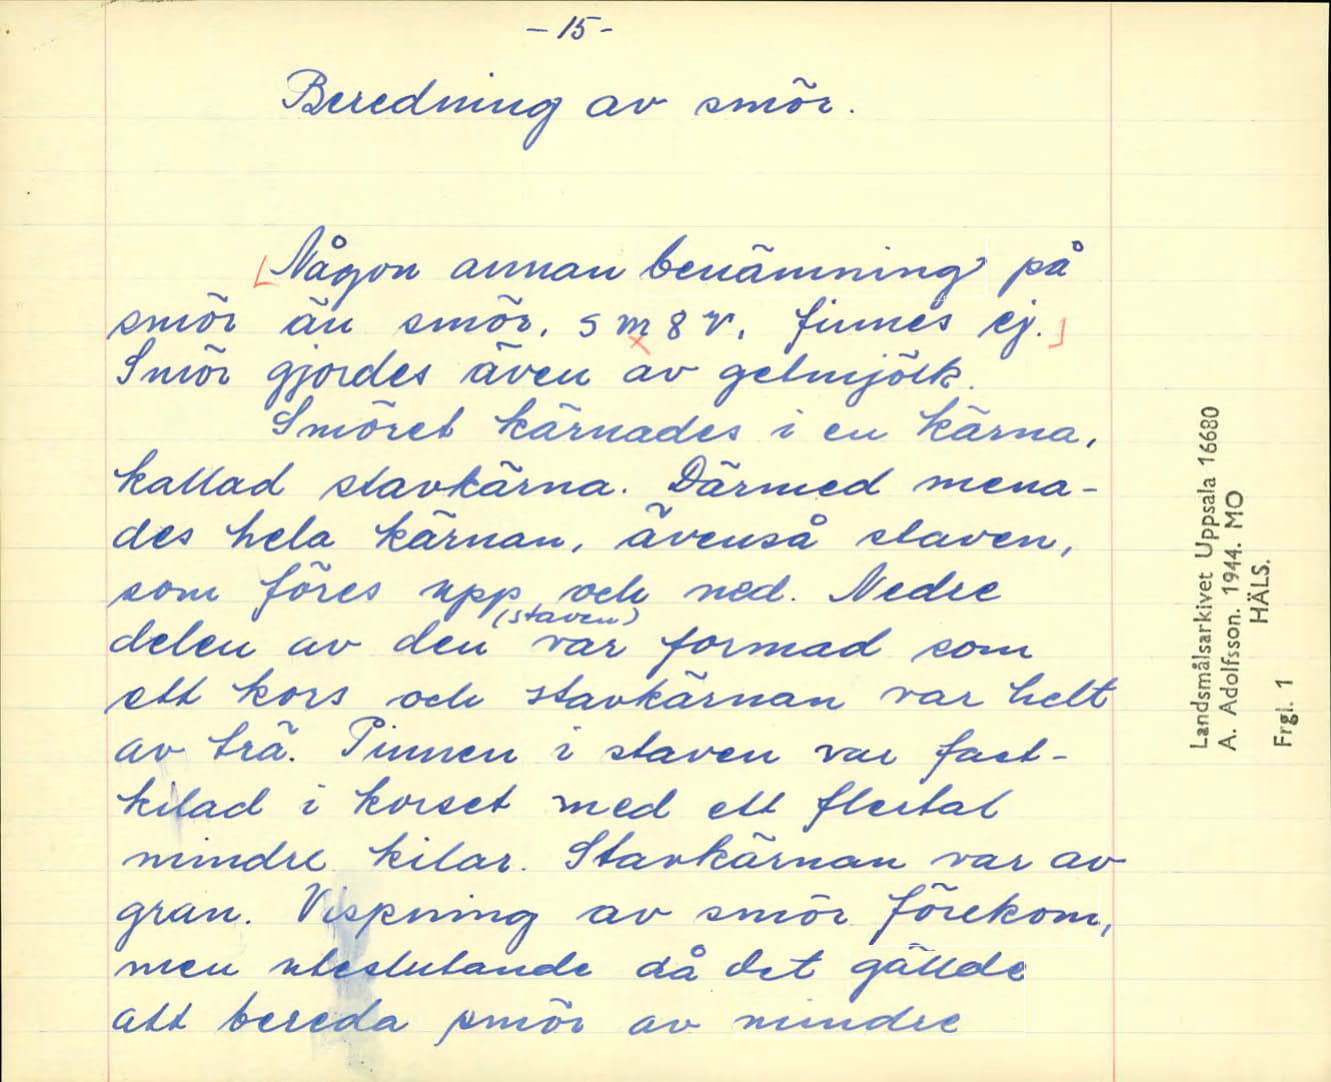 - 15 -
Beredning av smör.
Någon annan benämning på
smör än smör, sm8r, finnes ej.
Smör gjordes även av getmjölk.
Smöret kärnades i en kärna,
kallad stavkärna. Därmed mena-
des hela kärnan, ävenså staven,
som föres upp och ned. Nedre
delen av den (staven) var formad som
ett kors och stavkärnan var helt
av trä. Pinnen i staven var fast-
kilad i korset med ett flertal
mindre kilar. Stavkärnan var av
gran. Vispning av smör förekom,
men uteslutande då det gällde
att bereda smör av mindre
Landsmålsarkivet Uppsala 16680
A. Adolfsson. 1944. MO
HÄLS.
Frgl. 1